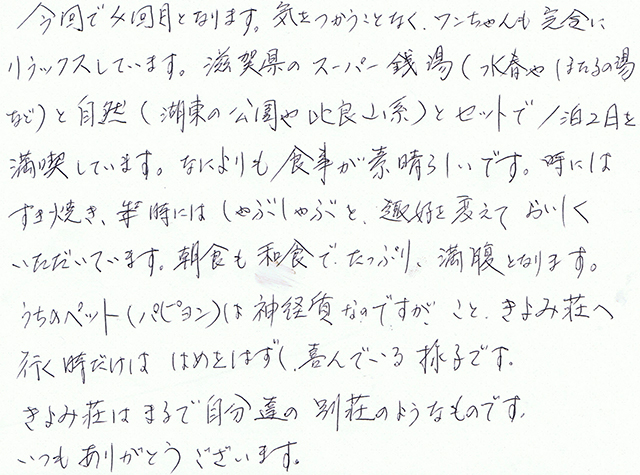 今回で4回目となります。気をつかうことなく、ワンちゃんも完全に
リラックスしています。滋賀県のスーパー銭湯(水春やほたるの湯
など)と自然(湖東の公園や比良山系)とセットで1泊2日を
満喫しています。なによりも食事が素晴らしいです。時には
すき焼き、時にはしゃぶしゃぶと、趣好を変えておいしく
いただいています。朝食も和食で、たっぷり、満腹となります。
うちのペット(パピヨン)は神経質なのですが、こと、きよみ荘へ
行く時だけははめをはずし、喜んでいる様子です。
きよみ荘はまるで自分達の別荘のようなものです。
いつもありがとうございます。